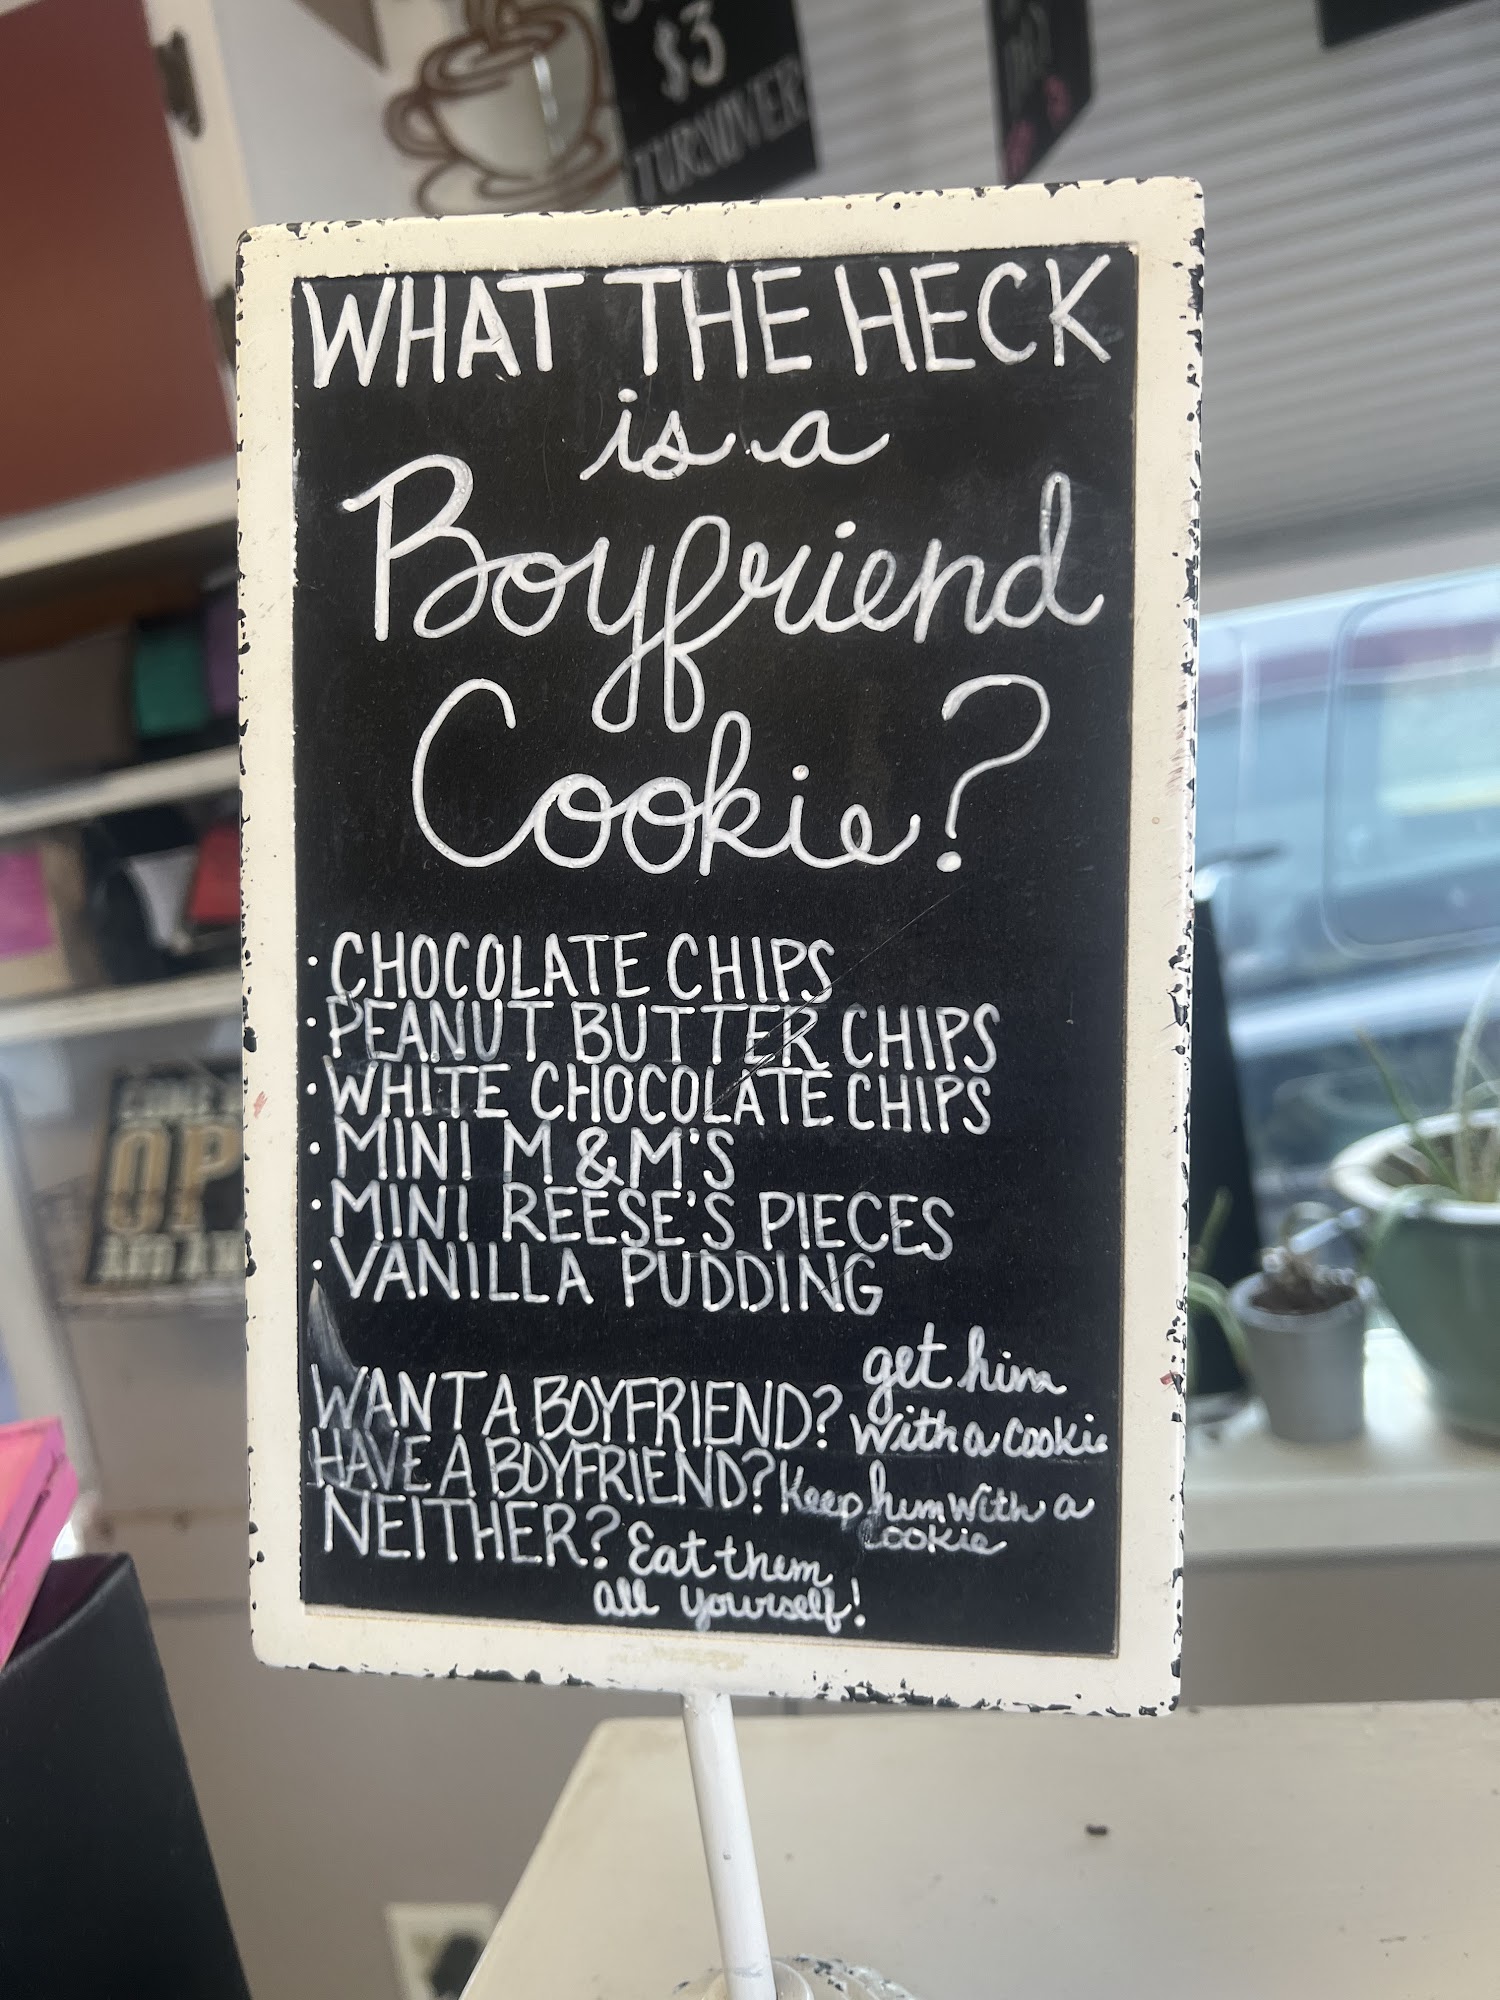 $3
TURNOVER
WHAT THE HECK
is a
Boyfriend
Cookie?
• CHOCOLATE CHIPS
• PEANUT BUTTER CHIPS
• WHITE CHOCOLATE CHIPS
• MINI M&M'S
• MINI REESE'S PIECES
• VANILLA PUDDING
WANT A BOYFRIEND? get him
with a cookie
HAVE A BOYFRIEND? Keep him with a
cookie
NEITHER? Eat them
all yourself!
OP